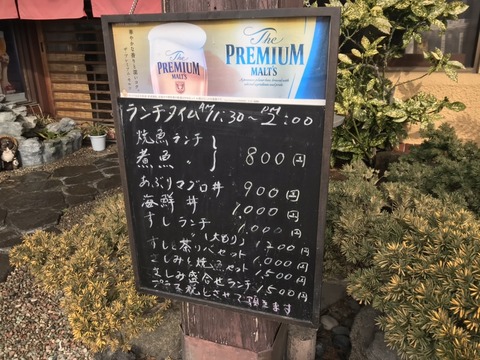 華やかな香りと深いコク
ザ・プレミアム・モルツ
The
PREMIUM
MALT'S
The
PREMIUM
MALT'S
ランチタイム AM11:30～PM2:00
焼魚ランチ
煮魚 〃 } 800円
あぶりマグロ丼 900円
海鮮丼 1,000円
すしランチ 1,000円
〃 (大切り) 1,200円
すしと茶ソバセット 1,000円
さしみと焼魚セット 1,500円
さしみ盛合せランチ 1,500円
させて頂きます